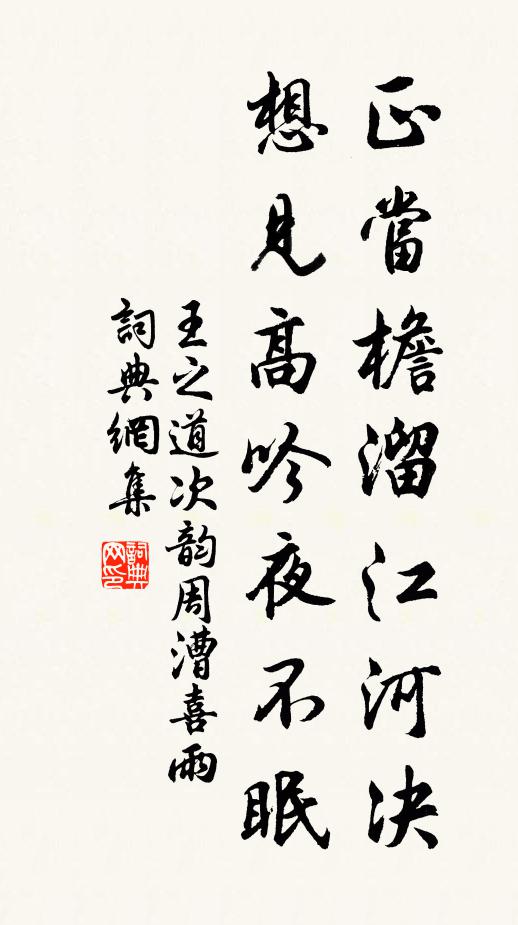 正當檐溜江河决
想見高吟夜不眠
王之道次韵周漕喜雨
詞典網集
詞典网印